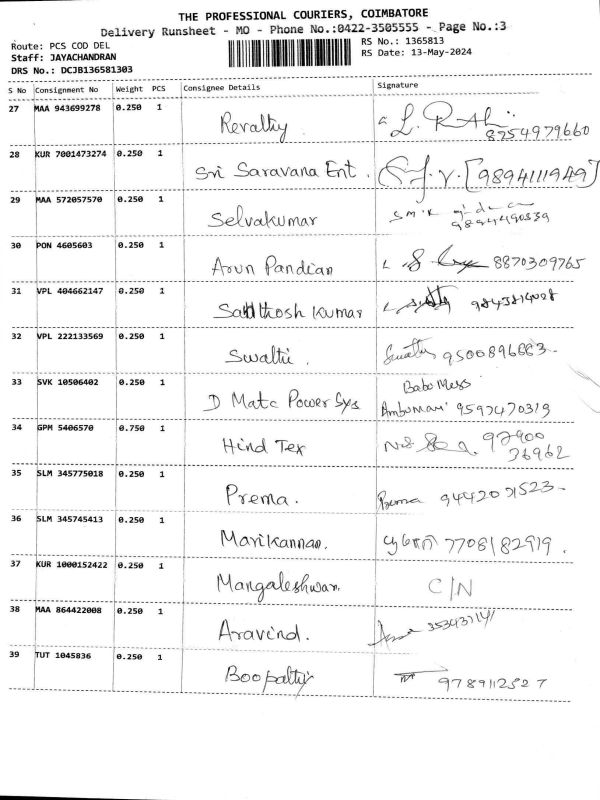 THE PROFESSIONAL COURIERS, COIMBATORE
Delivery Runsheet - MO - Phone No.:0422-3505555 - Page No.:3
Route: PCS COD DEL RS No.: 1365813
Staff: JAYACHANDRAN RS Date: 13-May-2024
DRS No.: DCJB136581303
S No Consignment No Weight PCS Consignee Details Signature
27 MAA 943699278 0.250 1 Revathy
8754979660
28 KUR 7001473274 0.250 1 Sri Saravana Ent. [9894111949]
29 MAA 572057570 0.250 1 Selvakumar
30 PON 4605603 0.250 1 Arun Pandian 8870309765
31 VPL 404662147 0.250 1 Santhosh Kumar
32 VPL 222133569 0.250 1 Swathi. Swathi 9500896883.
Babu Mess
33 SVK 10506402 0.250 1 D Matc Power Sys Ambumani 9597470313
34 GPM 5406570 0.750 1 Hind Tex 97900
36962
35 SLM 345775018 0.250 1 Prema. Prema 9442071523-
36 SLM 345745413 0.250 1 Marikannan. 7708182919.
37 KUR 1000152422 0.250 1 Mangaleshwari. C/N
38 MAA 864422008 0.250 1 Aravind.
39 TUT 1045836 0.250 1 Boopathy 9789112527